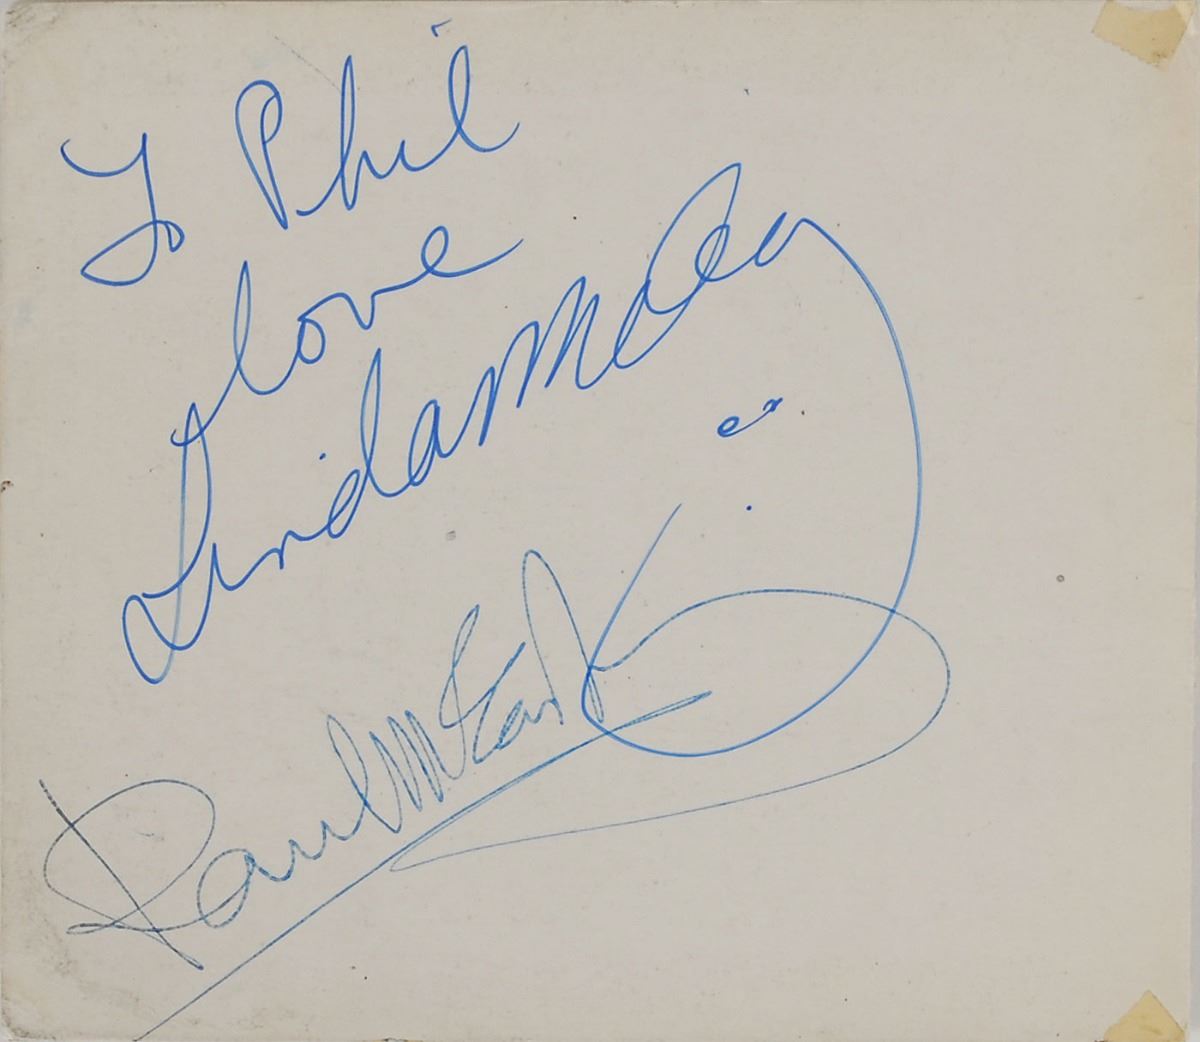 To Phil
love
Linda McCartney
Paul McCartney